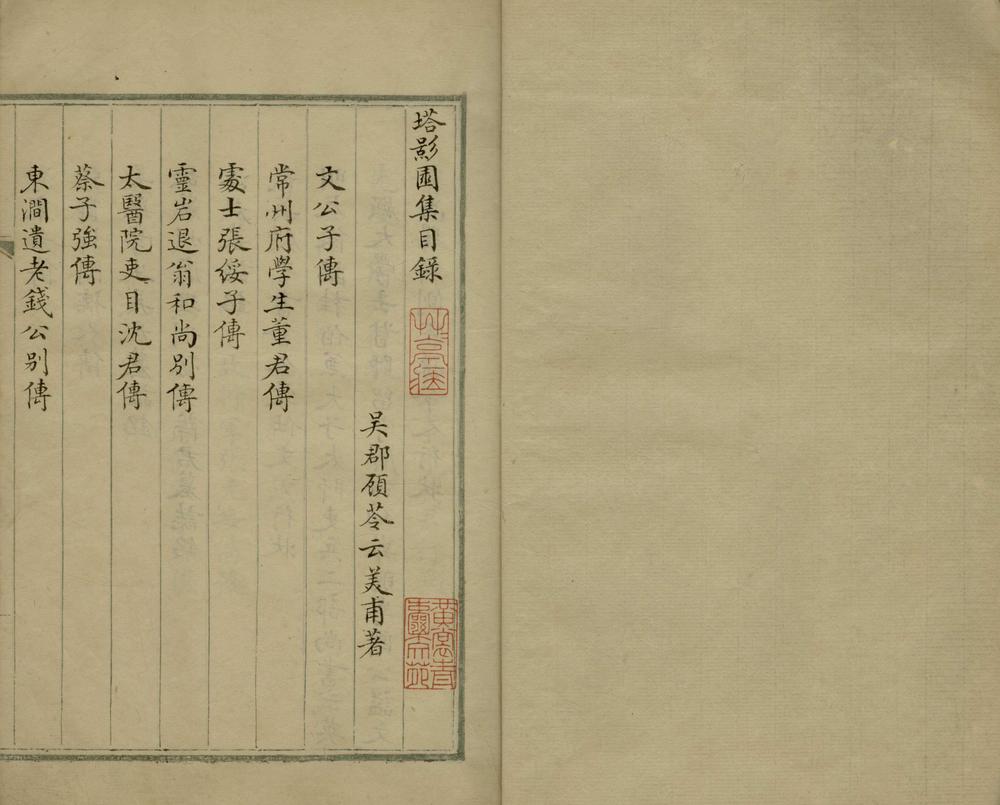 塔影園集目錄
吴郡顾苓云美甫著
文公子傳
常州府學生董君傳
處士張綏子傳
靈岩退翁和尚別傳
太醫院吏目沈君傳
蔡子強傳
東澗遺老錢公別傳